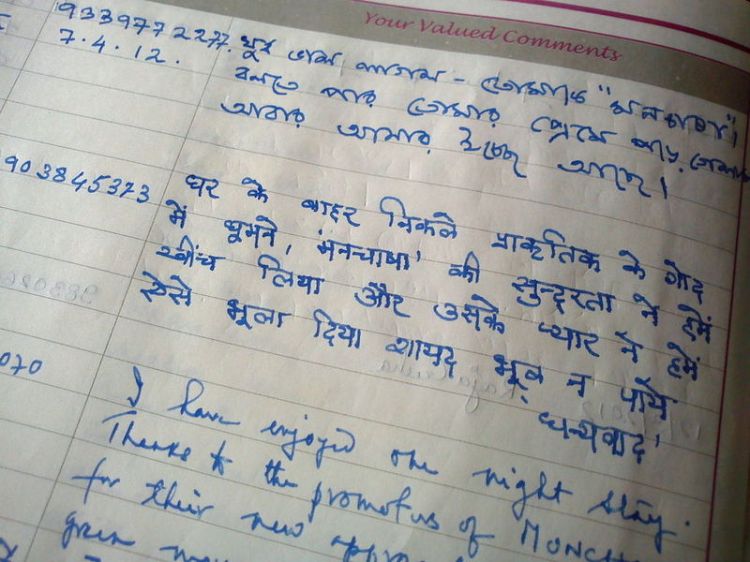 Your Valued Comments
9339772277.
7.4.12.
খুব ভাল লাগল - তোমাকে "মনচাষা"।
বলতে পার তোমার প্রেমে
আবার আসার ইচ্ছে আছে।
903845323
घर के बाहर निकले प्राकृतिक के गोद
में घूमने, 'मनचाषा' की सुन्दरता ने हमें
खींच लिया और उसके प्यार ने हमें
ऐसे भूला दिया शायद भूल न पाये
धन्यवाद'
070
I have enjoyed one night stay.
Thanks to the promoters of MONCH
for their new appro
given